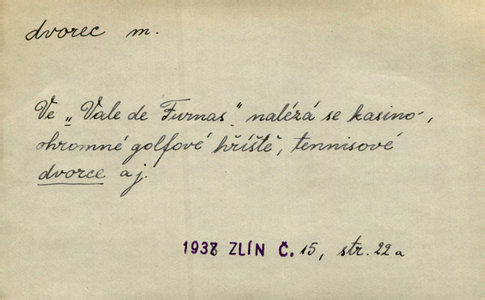 dvorec m.
Ve „Vale de Furnas" nalézá se kasino,
ohromné golfové hříště, tennisové
dvorce aj.
1938 ZLÍN Č. 15, str. 22a